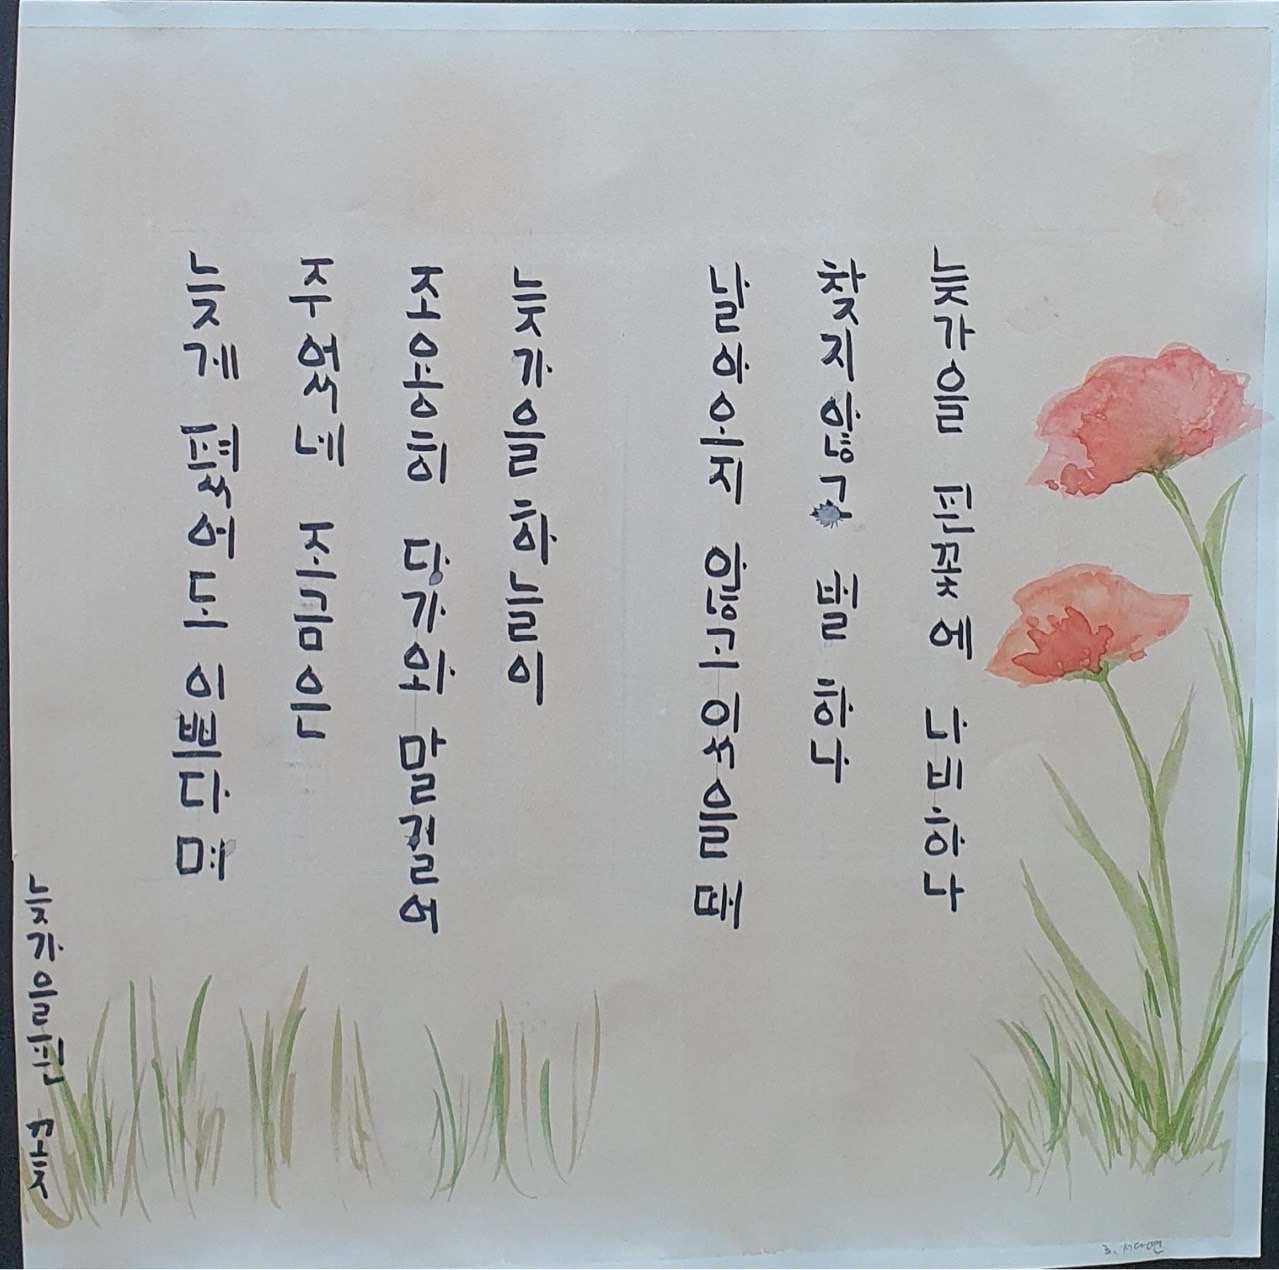 늦가을 핀꽃에 나비하나
찾지않고 벌 하나
날아오지 않고있을때
늦가을하늘이
조용히 다가와 말걸어
주었네 조금은
늦게 폈어도 이쁘다며
늦가을핀 꽃